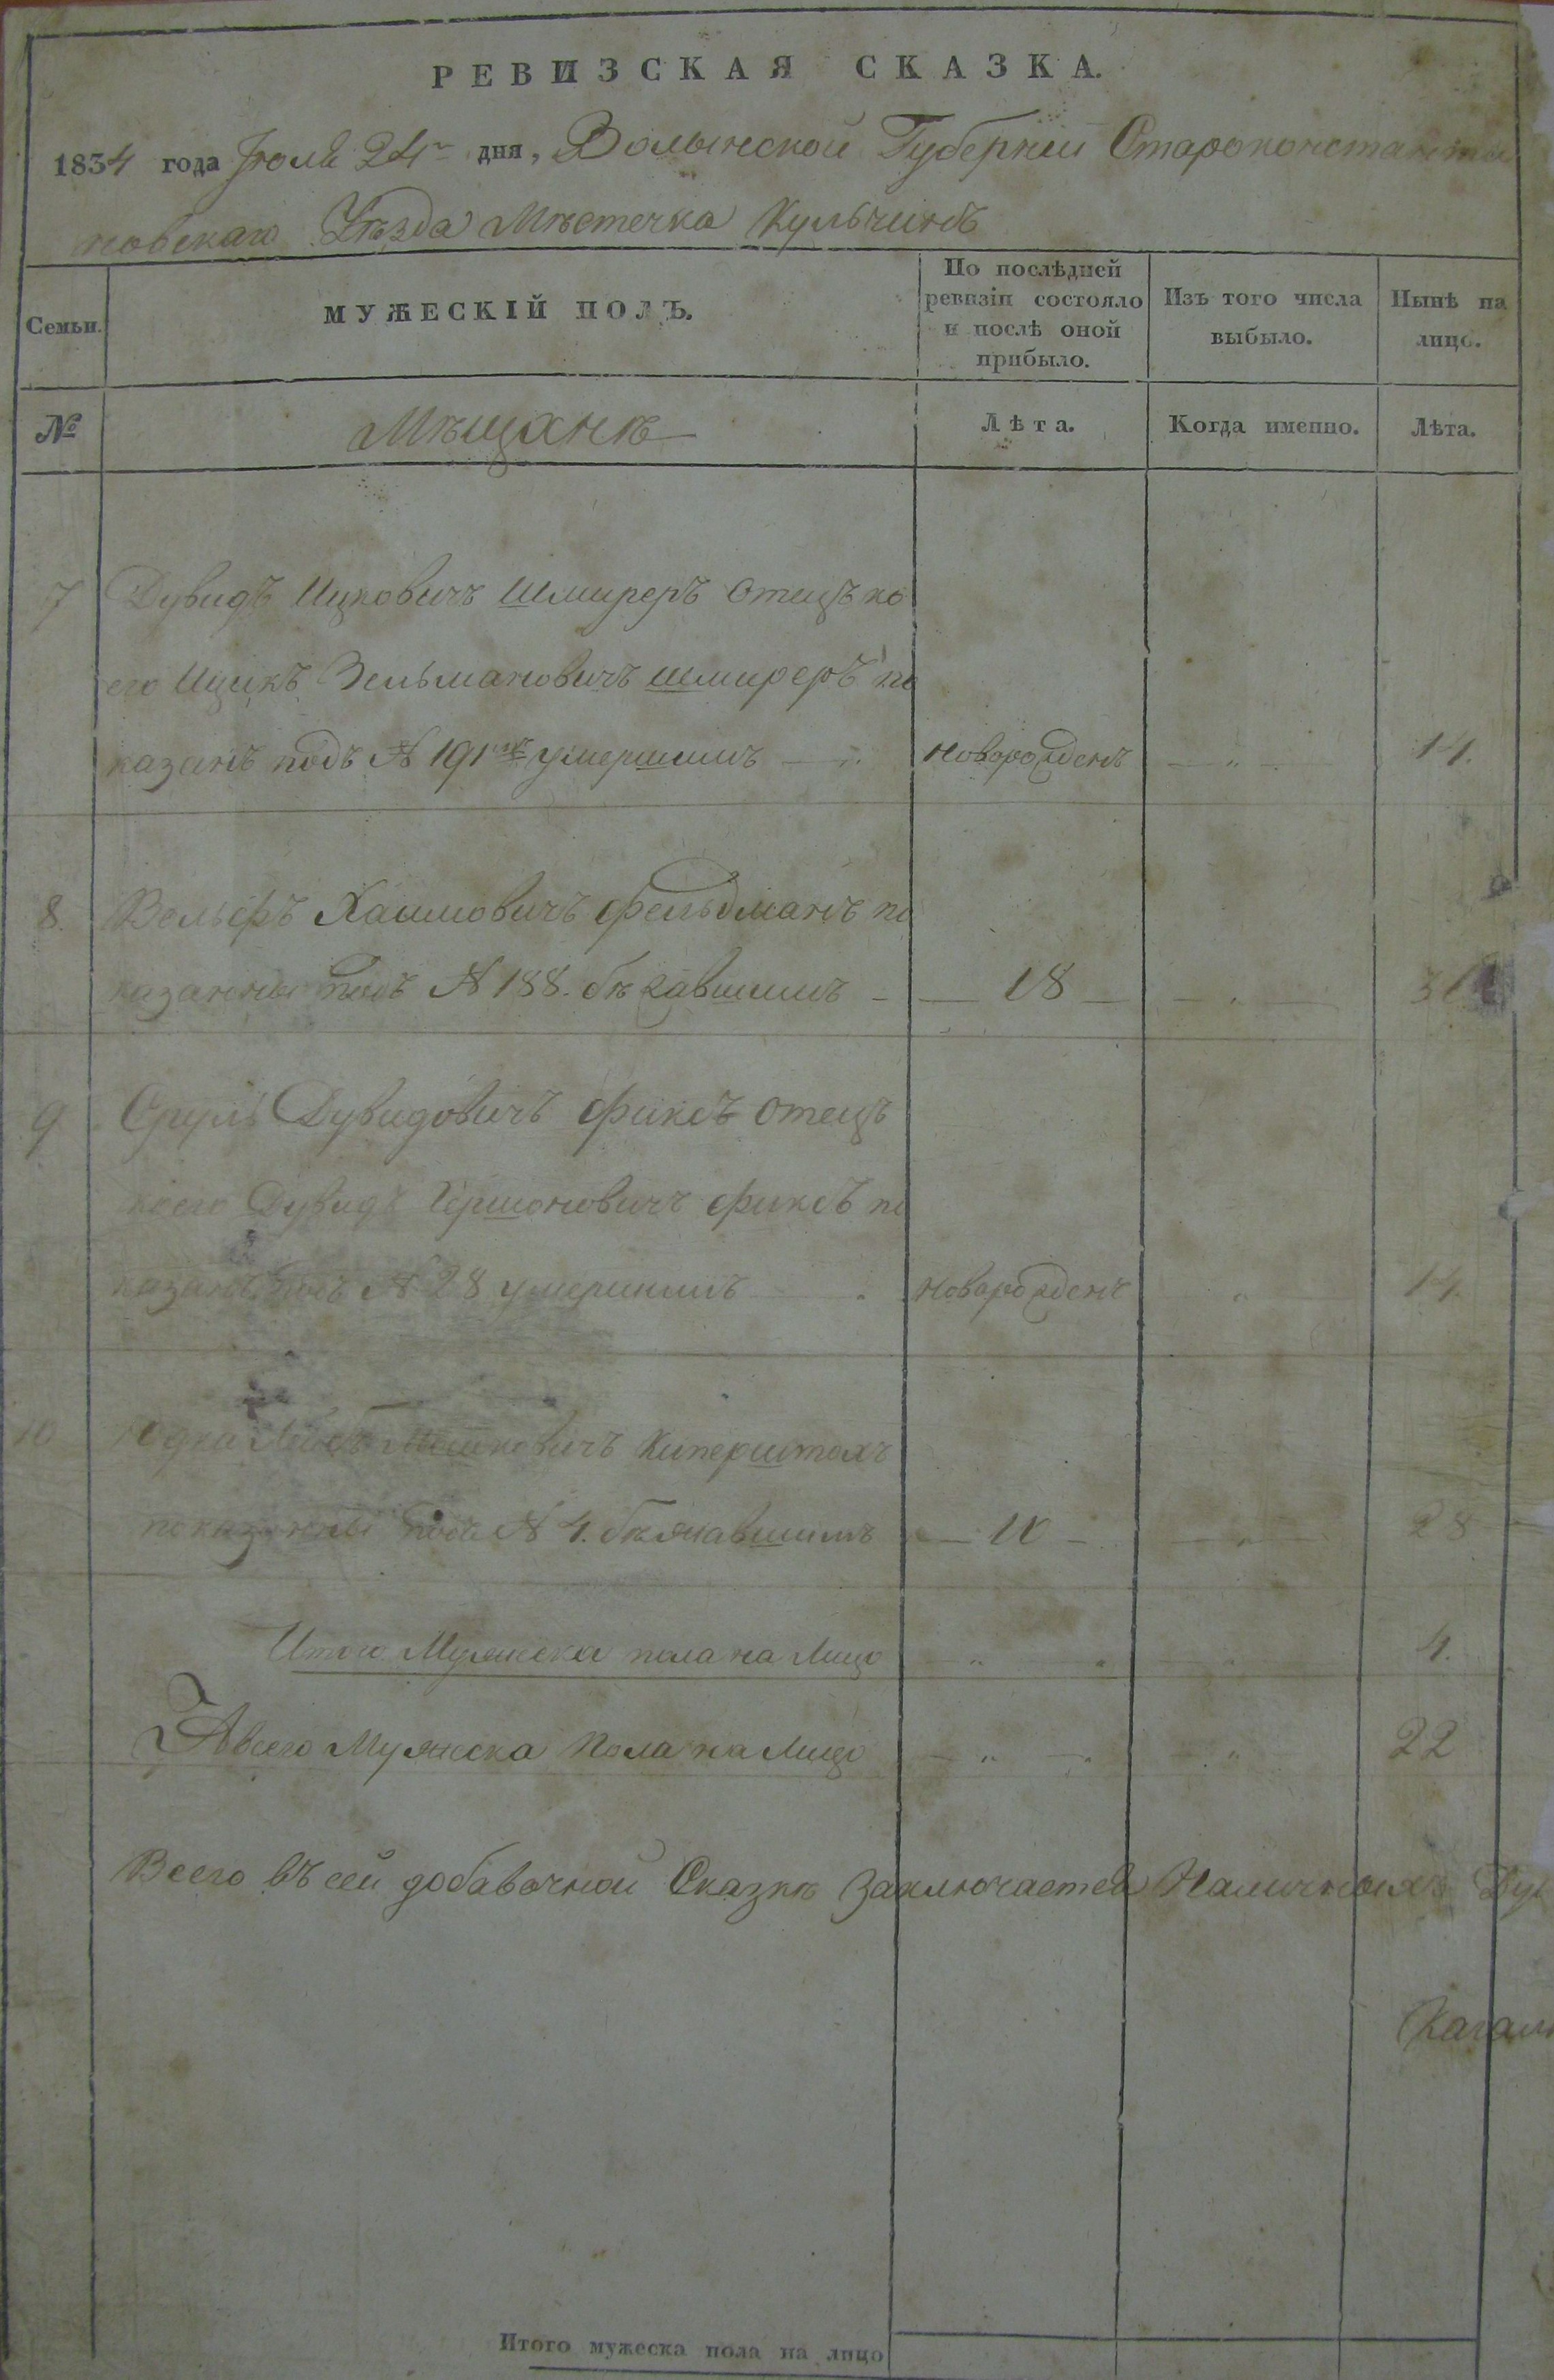 РЕВИЗСКАЯ СКАЗКА.
1834 года Іюля 24 дня, Волынской Губерніи Староконстанти
новскаго Уѣзда Мѣстечка Кульчинъ
Семьи.
МУЖЕСКІЙ ПОЛЪ.
По послѣдней
ревизіи состояло
и послѣ оной
прибыло.
Изъ того числа
выбыло.
Нынѣ на
лицо.
№
Мѣщанѣ
Лѣта.
Когда именно.
Лѣта.
7 Дувидъ Ицковичъ Шмиреръ отецъ ко
его Ицикъ Зельмановичъ шмиреръ по
казанъ подъ № 191 умершимъ — новорожденъ — " — 14.
8. Вельфъ Хаимовичъ фельдманъ по
казанный подъ № 188. бѣжавшимъ — 18 — " —
9 Сруль Дувидовичъ фиксъ отецъ
коего Дувидъ Гершоновичъ фиксъ по
казанъ подъ № 28 умершимъ — новорожденъ " — 14.
10 Юдка Лейбъ Мошковичъ Киперштохъ
показанный подъ № 4. бѣжавшимъ — 10 — " — 28
Итого Мужеска пола на Лицо — " — " 4.
А всего Мужеска Пола на Лицо — " — " 22
Всего въ сей добавочной Сказкѣ Заключается Наличныхъ Ду
Кагаль
Итого мужеска пола на лицо